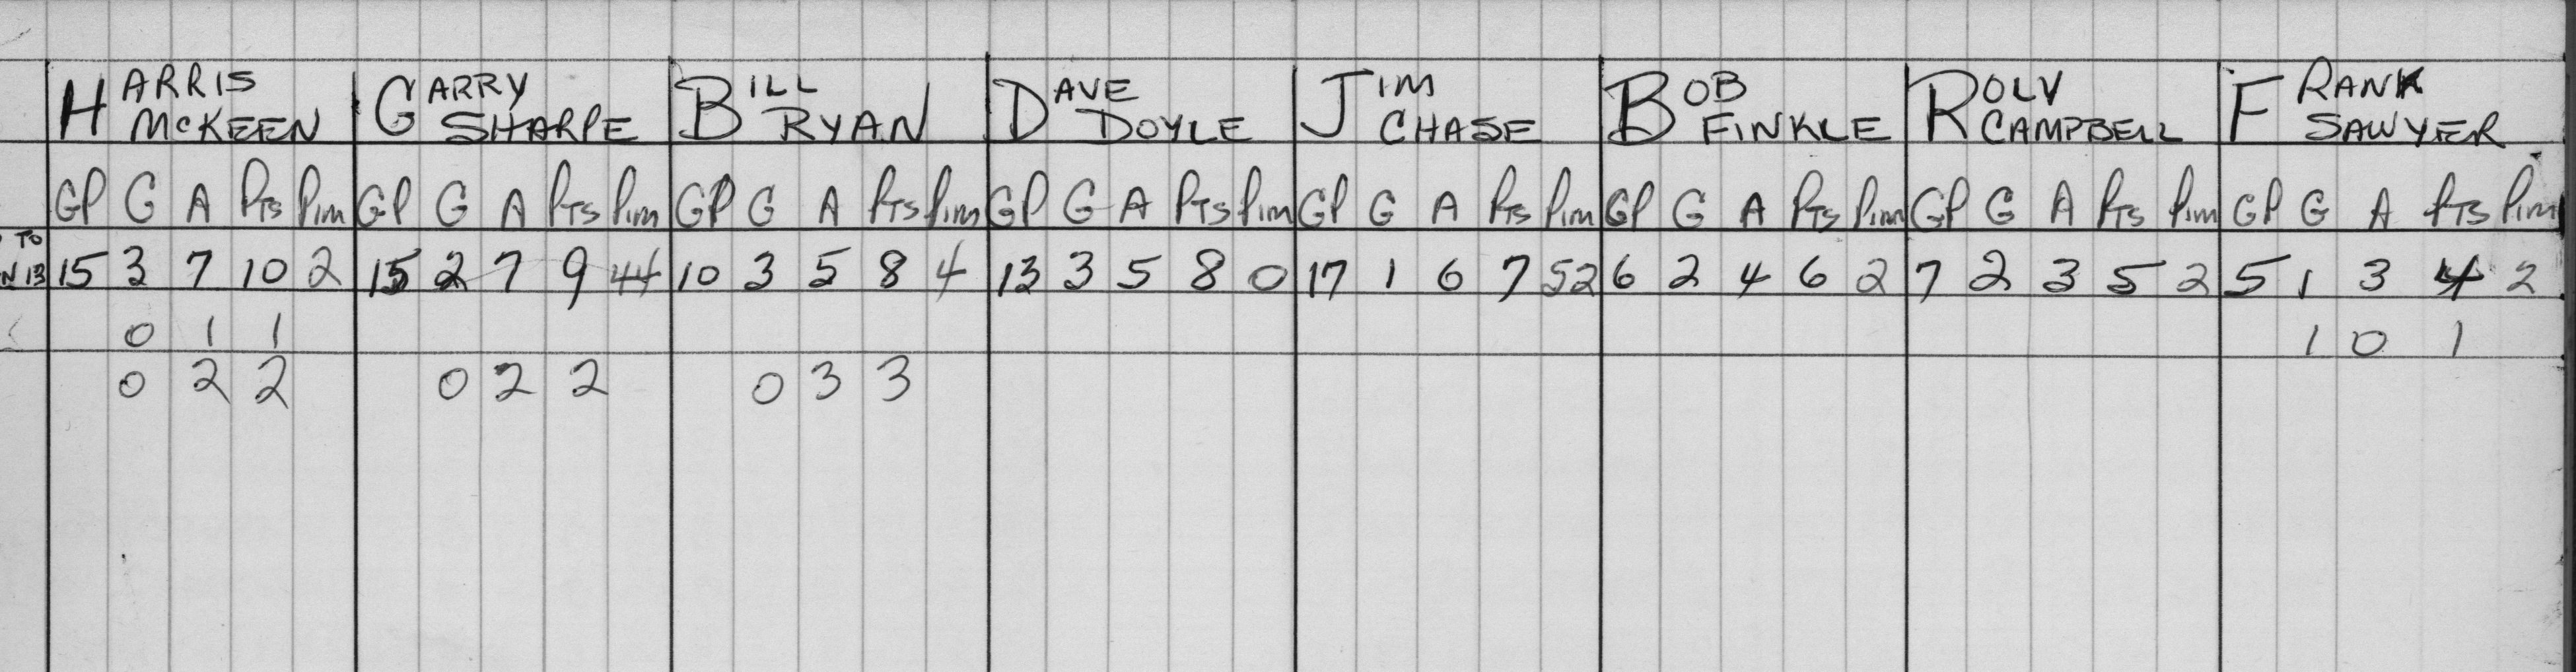 HARRIS McKEEN GARRY SHARPE BILL RYAN DAVE DOYLE JIM CHASE BOB FINKLE ROLV CAMPBELL FRANK SAWYER
GP G A Pts Pim GP G A Pts Pim GP G A Pts Pim GP G A Pts Pim GP G A Pts Pim GP G A Pts Pim GP G A Pts Pim GP G A Pts Pim
TO
N 13 15 3 7 10 2 15 2 7 9 44 10 3 5 8 4 13 3 5 8 0 17 1 6 7 52 6 2 4 6 2 7 2 3 5 2 5 1 3 4 2
0 1 1 1 0 1
0 2 2 0 2 2 0 3 3